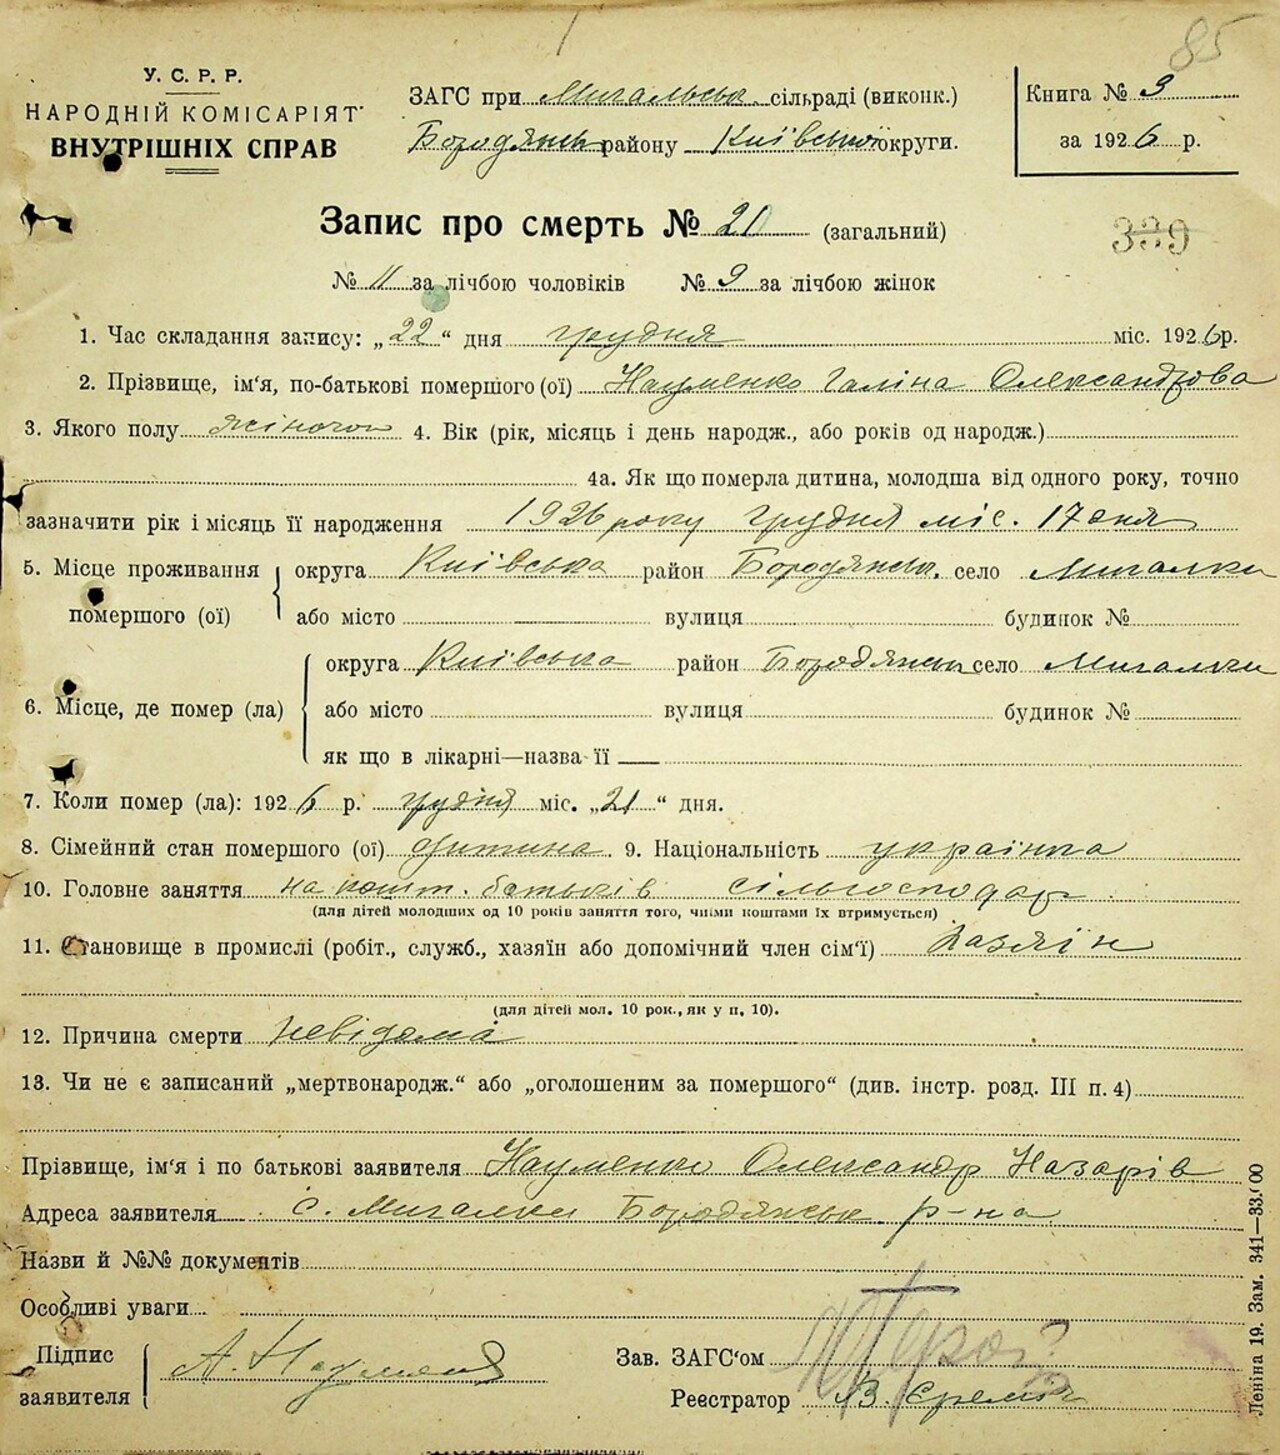 85
У. С. Р. Р.
НАРОДНІЙ КОМІСАРІЯТ
ВНУТРІШНІХ СПРАВ
ЗАГС при Мигальськ. сільраді (виконк.)
Бородянськ району Київської округи.
Книга № 3
за 1926 р.
Запис про смерть № 21 (загальний)
339
№ 11 за лічбою чоловіків № 9 за лічбою жінок
1. Час складання запису: „22“ дня грудня міс. 1926 р.
2. Прізвище, ім'я, по-батькові помершого (ої) Науменко Галіна Олександрова
3. Якого полу жіночого 4. Вік (рік, місяць і день народж., або років од народж.)
4а. Як що померла дитина, молодша від одного року, точно
зазначити рік і місяць її народження 1926 року грудня міс. 17 дня
5. Місце проживання помершого (ої) округа Київська район Бородянськ. село Мигалки
або місто вулиця будинок №
6. Місце, де помер (ла) округа Київська район Бородянськ село Мигалки
або місто вулиця будинок №
як що в лікарні—назва її
7. Коли помер (ла): 1926 р. грудня міс. „21“ дня.
8. Сімейний стан помершого (ої) дитина 9. Національність українка
10. Головне заняття на кошт. батьків сільгосподар.
(для дітей молодших од 10 років заняття того, чиїми коштами їх втримується)
11. Становище в промислі (робіт., служб., хазяїн або допомічний член сім'ї) хазяїн
(для дітей мол. 10 рок., як у п. 10).
12. Причина смерти невідома
13. Чи не є записаний „мертвонародж.“ або „оголошеним за помершого“ (див. інстр. розд. III п. 4)
Прізвище, ім'я і по батькові заявителя Науменко Олександр Назарів
Адреса заявителя с. Мигалки Бородянськ р-на
Назви й №№ документів
Особливі уваги
Підпис заявителя А. Науменко
Зав. ЗАГС'ом
Реєстратор В.
Леніна 19. Зам. 341—33.000